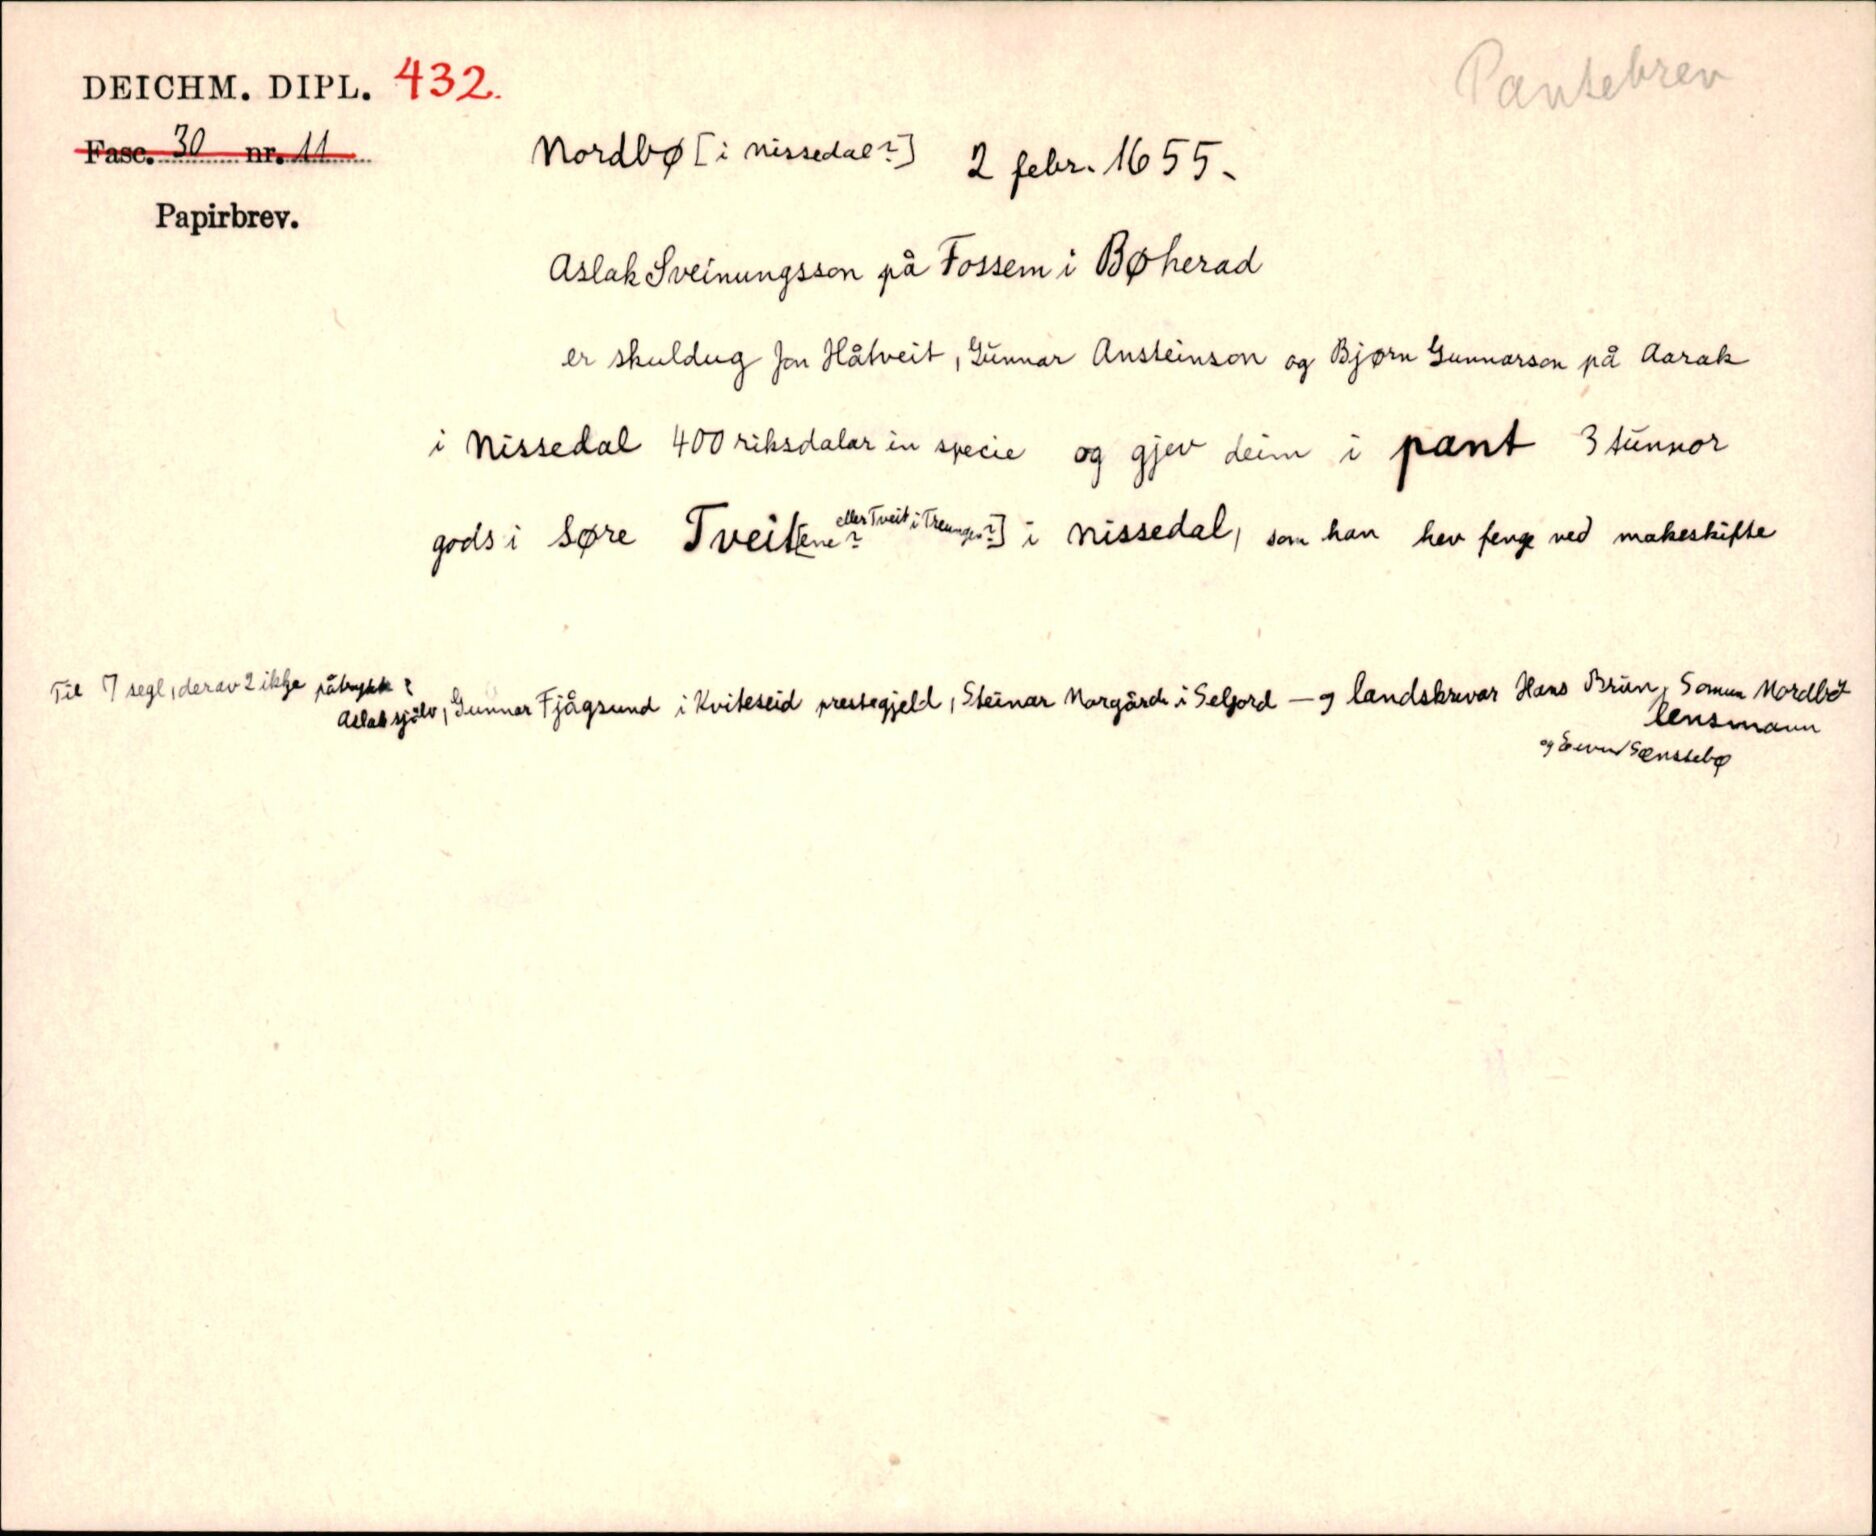 DEICHM. DIPL. 432.
Pantebrev
Fasc. 30 nr. 11
Nordbø [i Nissedal?] 2 febr. 1655.
Papirbrev.
Aslak Sveinungsson på Fossem i Bøherad
er skuldug Jon Håtveit, Gunnar Ansteinson og Bjørn Gunnarson på Aarak
i Nissedal 400 riksdalar in specie og gjev deim i pant 3 tunnor
gods i Søre Tveit[ene? eller Tveit i Treungen?] i Nissedal, som han hev fenge ved makeskifte
Til 7 segl, derav 2 ikkje påtrykk:
Aslak sjölv, Gunnar Fjågsund i Kviteseid prestegjeld, Steinar Norgården i Seljord – og landskrivar Hans Brun, Nordbø
lensmann
og